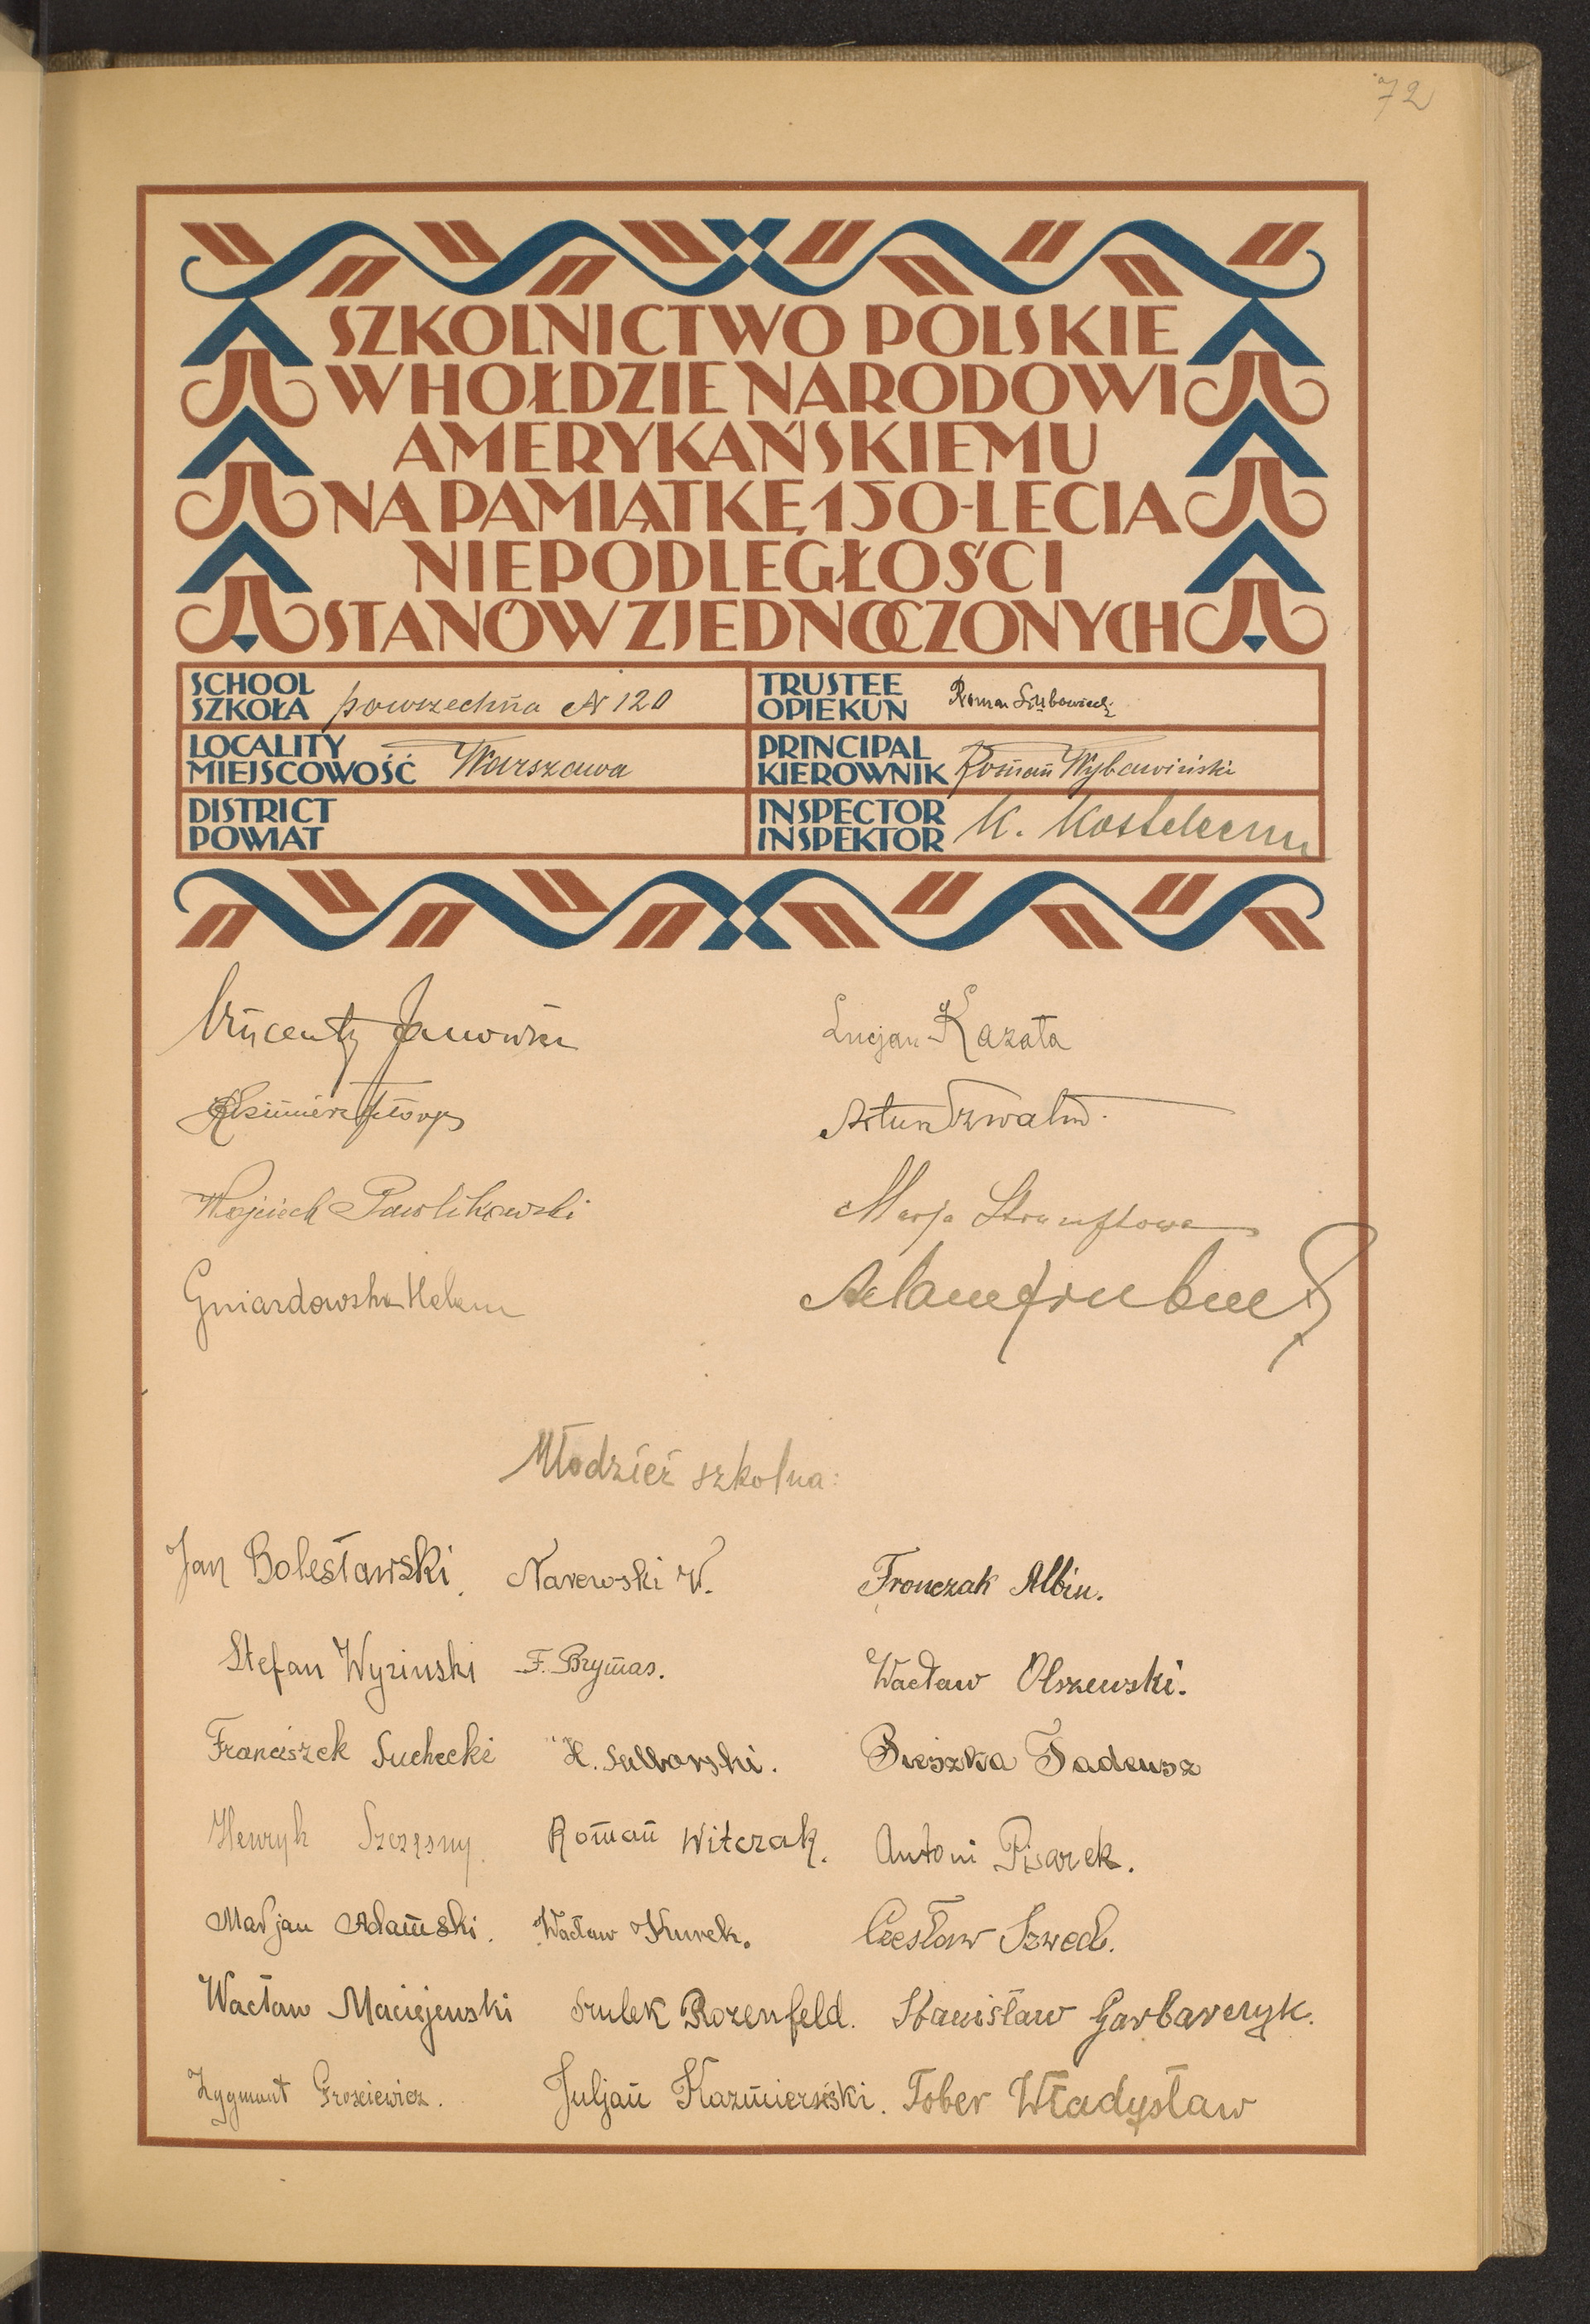 72
SZKOLNICTWO POLSKIE
W HOŁDZIE NARODOWI
AMERYKAŃSKIEMU
NA PAMIĄTKĘ 150-LECIA
NIEPODLEGŁOŚCI
STANÓW ZJEDNOCZONYCH
SCHOOL
SZKOŁA powszechna N 120
TRUSTEE
OPIEKUN Roman
LOCALITY
MIEJSCOWOŚĆ Warszawa
PRINCIPAL
KIEROWNIK Roman Wybawiński
DISTRICT
POWIAT
INSPECTOR
INSPEKTOR K.
Wincenty Janowski
Lucjan Kazata
Kazimierz
Artur
Wojciech Pawlikowski
Marja
Gniazdowska Helena
Adam
Młodzież szkolna:
Jan Bolesławski. Narewski W. Fronczak Albin.
Stefan Wyrinski F. Brymas. Wacław Olszewski.
Franciszek Suchecki H. Tadeusz
Henryk Szczęsny. Roman Witczak. Antoni Pisarek.
Marjan Adamski. Wacław Kurek. Czesław Szwed.
Wacław Maciejewski Szulek Rozenfeld. Stanisław Garbarczyk.
Zygmunt Juljan Kazmierski. Tober Władysław